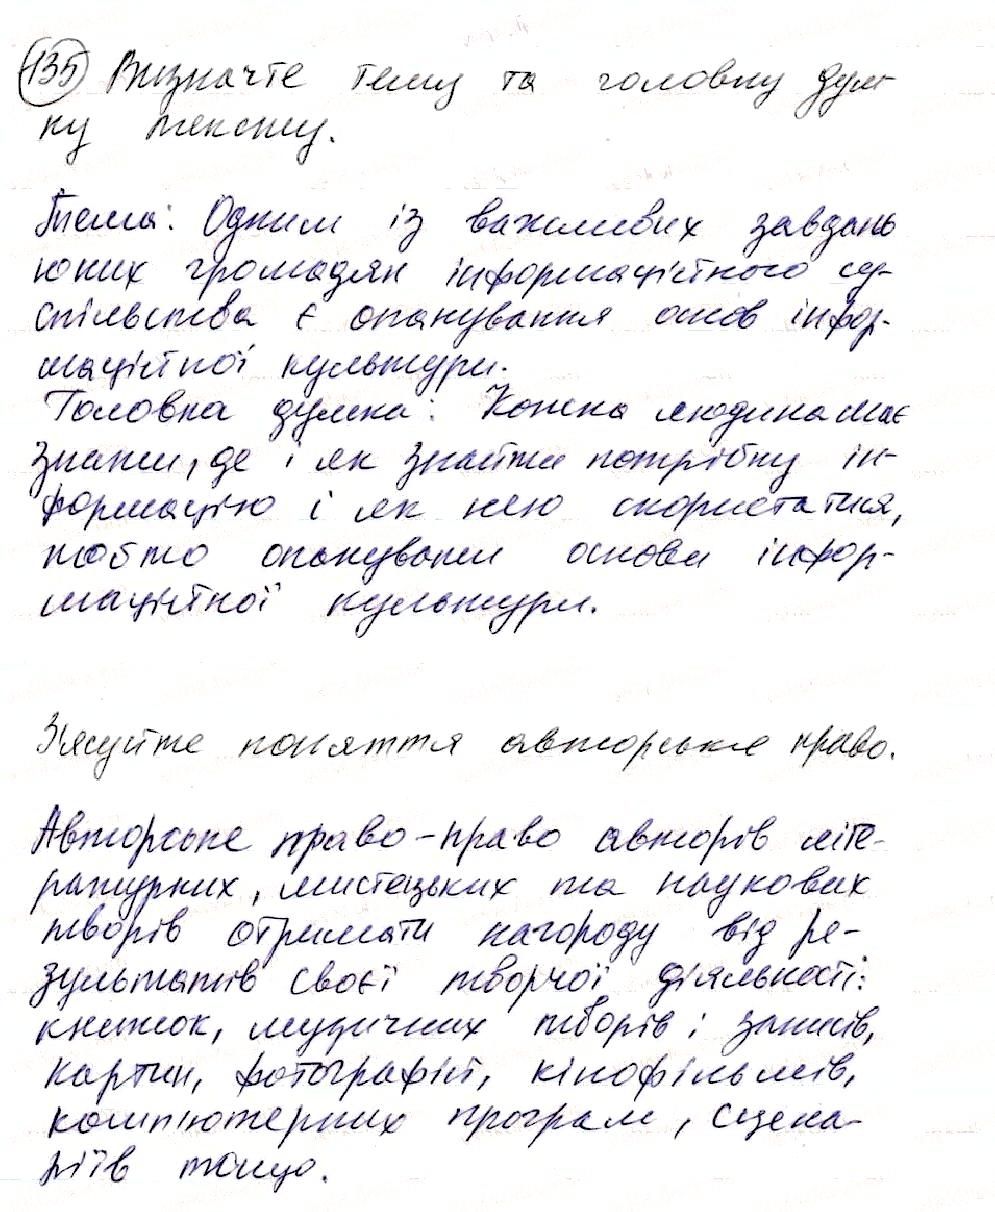 135 Визначте тему та головну дум-
ку тексту.
Тема: Одним із важливих завдань
юних громадян інформаційного су-
спільства є опанування основ інфор-
маційної культури.
Головна думка: Кожна людина має
знати, де і як знайти потрібну ін-
формацію і як нею скористатися,
тобто опанувати основи інфор-
маційної культури.
З'ясуйте поняття авторське право.
Авторське право - право авторів літе-
ратурних, мистецьких та наукових
творів отримати нагороду від ре-
зультатів своєї творчої діяльності:
книжок, музичних творів і записів,
картин, фотографій, кінофільмів,
комп'ютерних програм, сцена-
ріїв тощо.